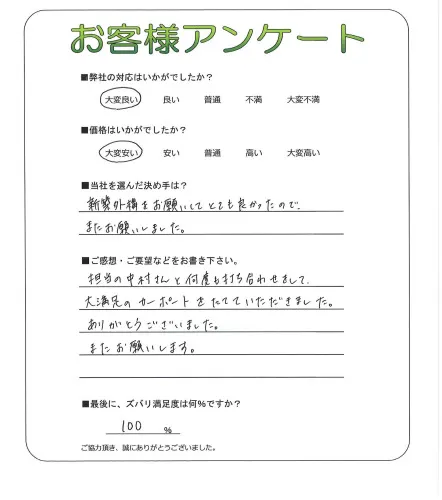 お客様アンケート
■弊社の対応はいかがでしたか？
大変良い 良い 普通 不満 大変不満
■価格はいかがでしたか？
大変安い 安い 普通 高い 大変高い
■当社を選んだ決め手は？
新築外構をお願いしてとても良かったので、
またお願いしました。
■ご感想・ご要望などをお書き下さい。
担当の中村さんと何度も打ち合わせをして、
大満足のカーポートをたてていただきました。
ありがとうございました。
またお願いします。
■最後に、ズバリ満足度は何％ですか？
100 %
ご協力頂き、誠にありがとうございました。